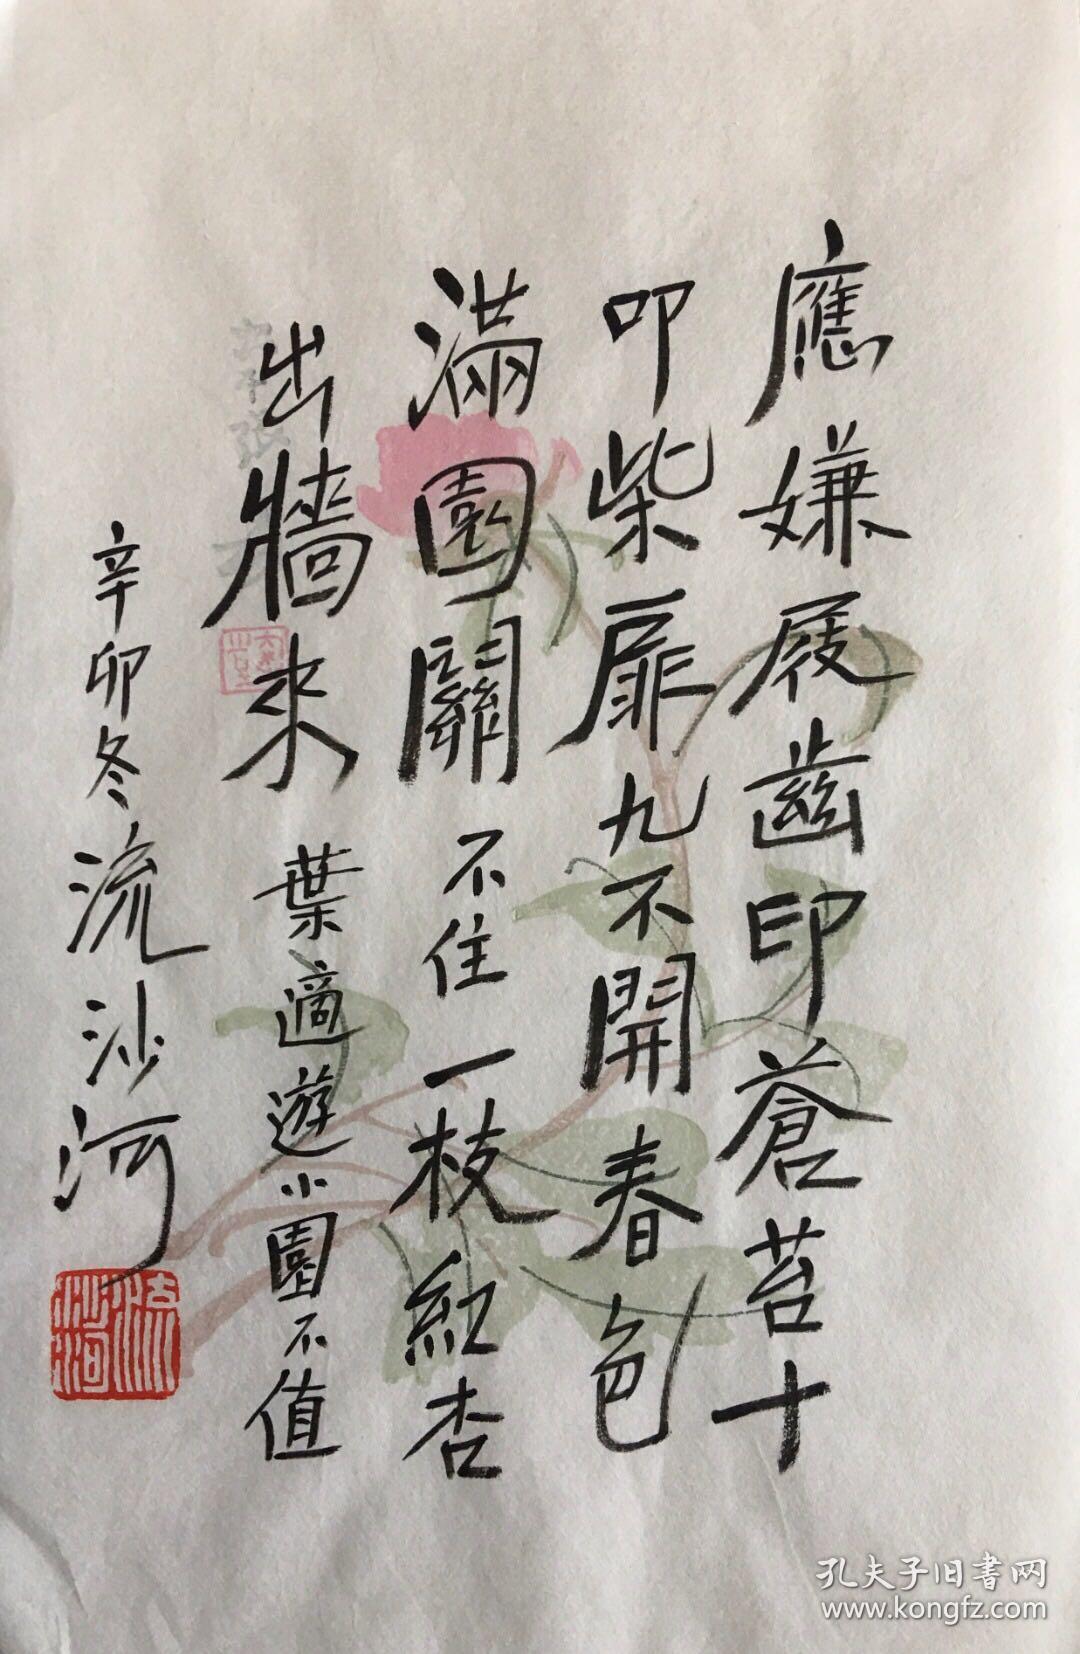 應嫌屐齒印蒼苔十
叩柴扉九不開春色
滿園關不住一枝紅杏
出牆來 葉適遊小園不值
辛卯冬流沙河
孔夫子旧書网
www.kongfz.com